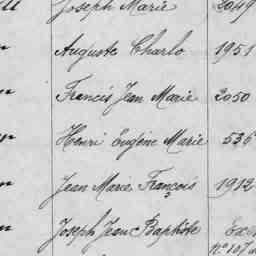 Joseph Marie 2049
Auguste Charlo 1951
Francis Jean Marie 2050
Henri Eugène Marie 536
Jean Marie François 1912
Joseph Jean Baptiste